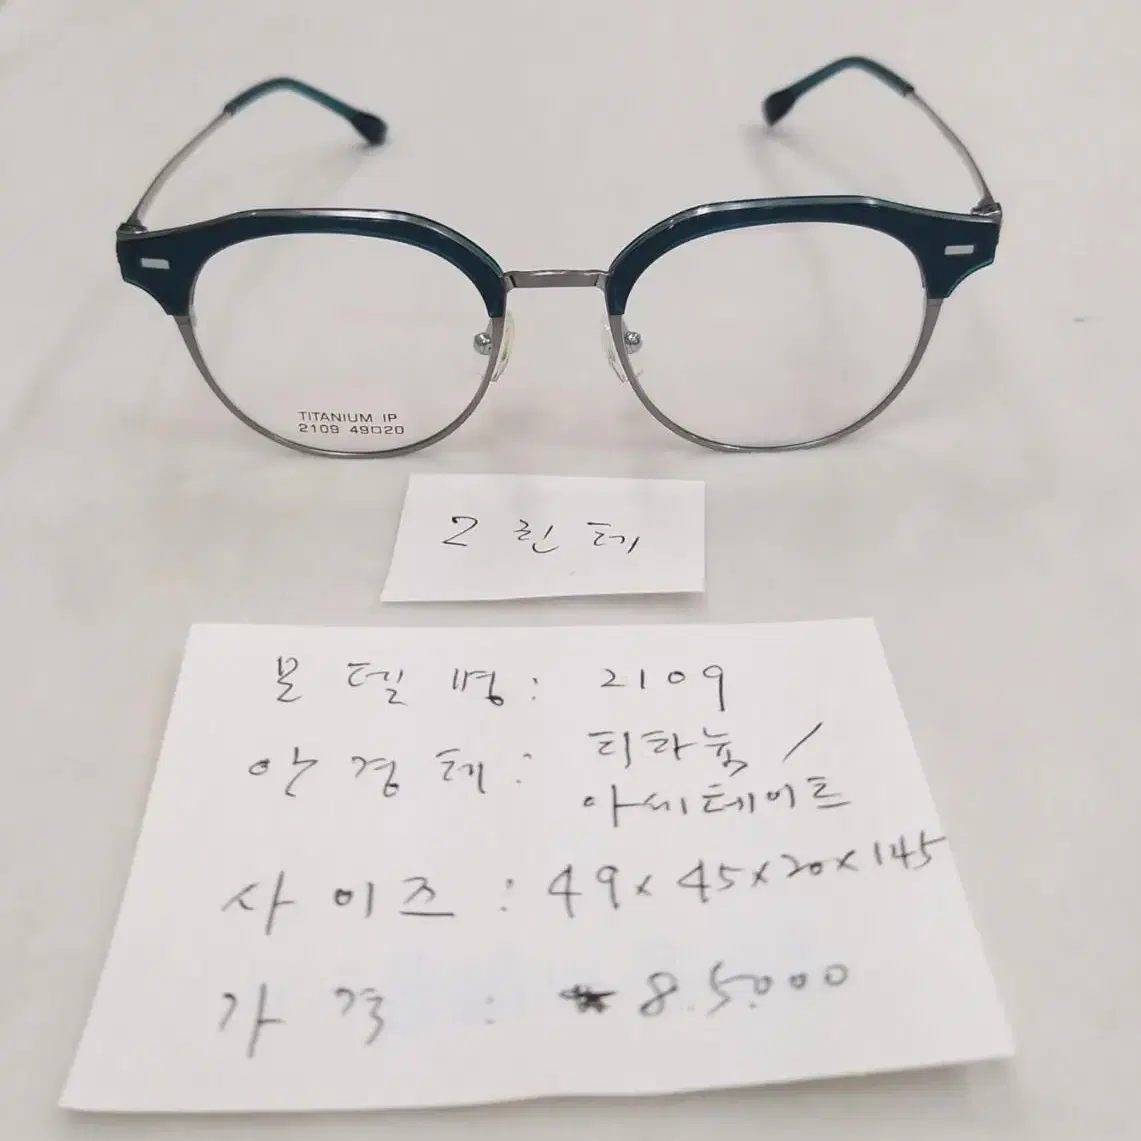 TITANIUM IP
2109 49□20
2린테
모델명: 2109
안경테: 티타늄/
아세테이트
사이즈: 49x45x20x145
가격: 85.000